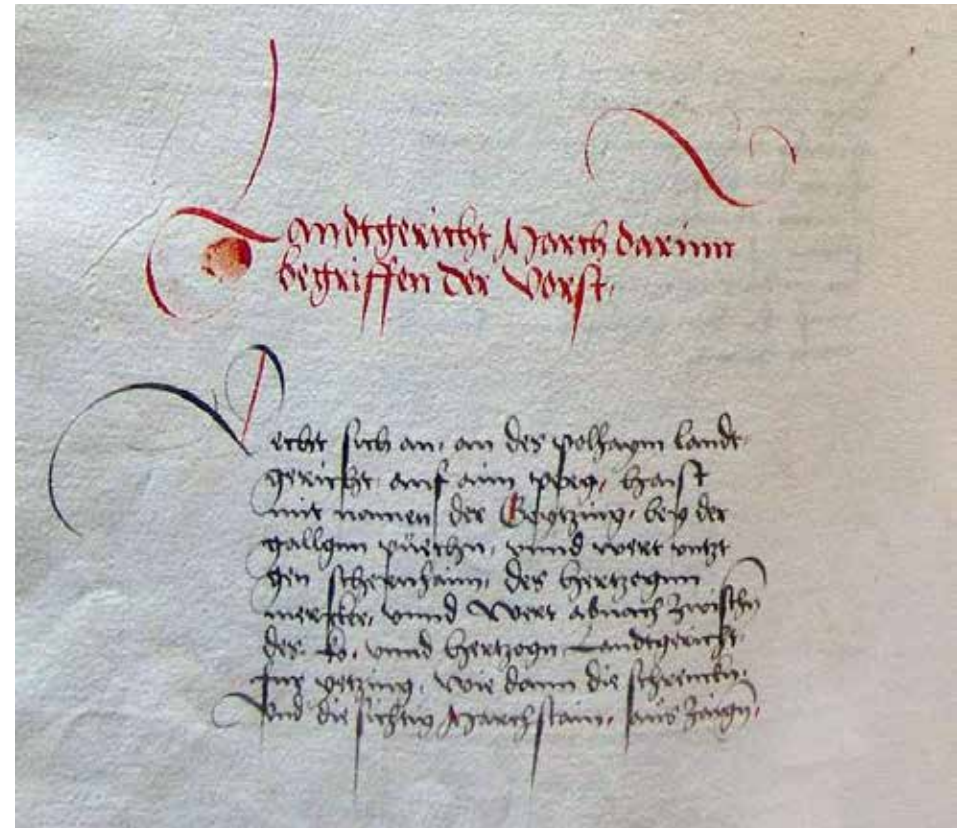 Landtgericht March darinn
begriffen der Vorst,
Vecht sich an, an des polhaym landt
gericht auf aim perg, haist
mit namen der Geytzing, bey der
gallgnn püechn, vnnd wert vntzt
gen schernhaim, des hertzognn
merkte, vnnd Wert abnach zwischn
des. k. vnnd hertzogn Landtgericht
Inx petzing, wie dann die schrencken,
Vnd die sichtig Marchstain, aus zaign,